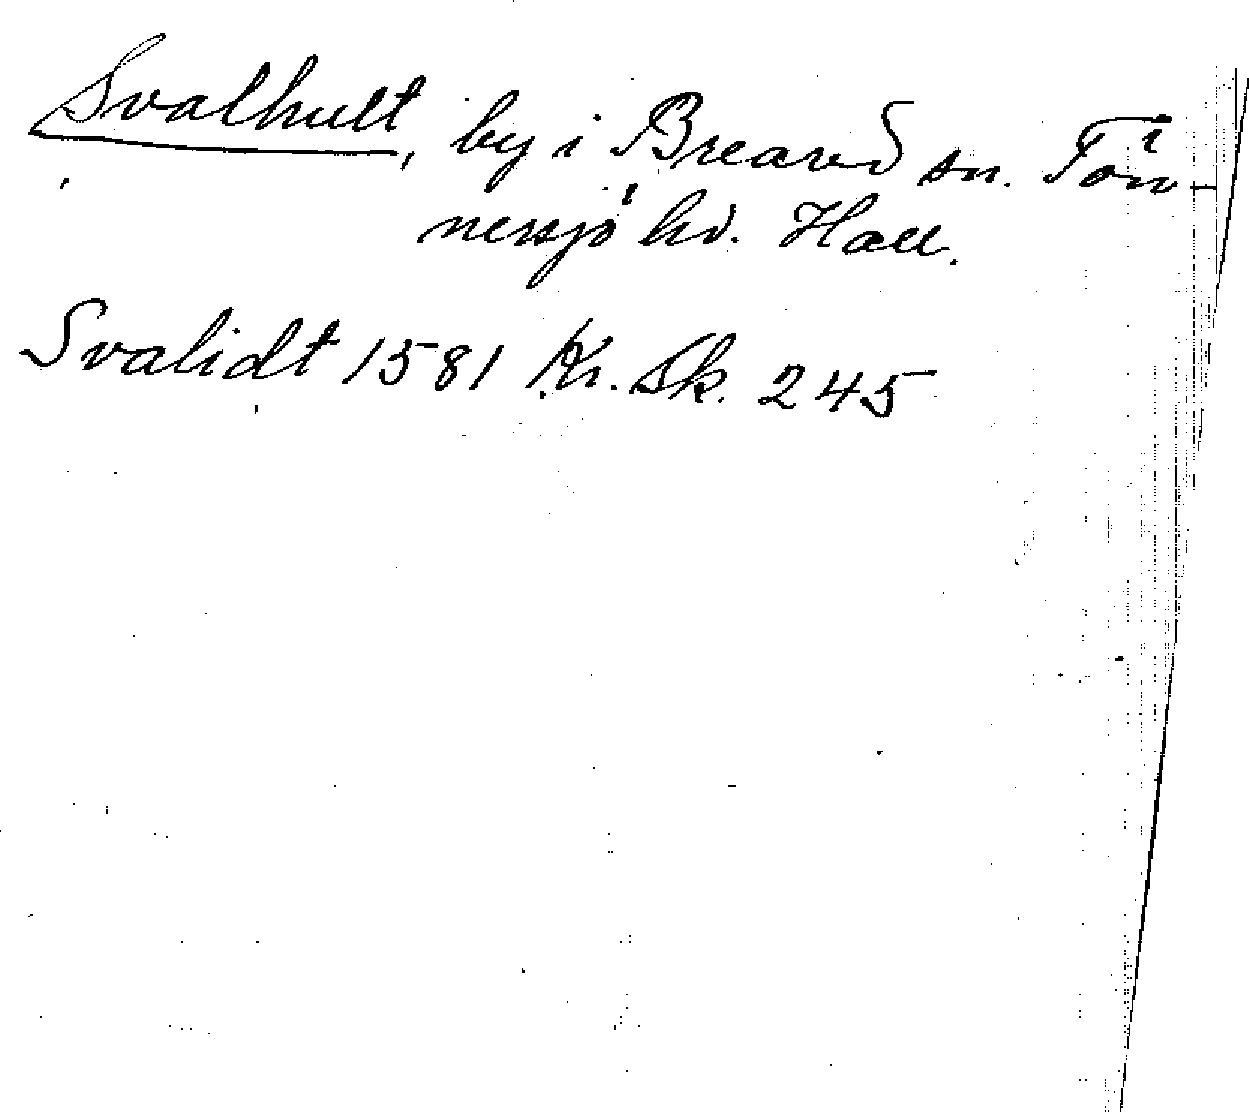 Svalhult, by i Breared sn. Tön-
nersjö hd. Hall.
Svalidt 1581 Kr. Sk. 245